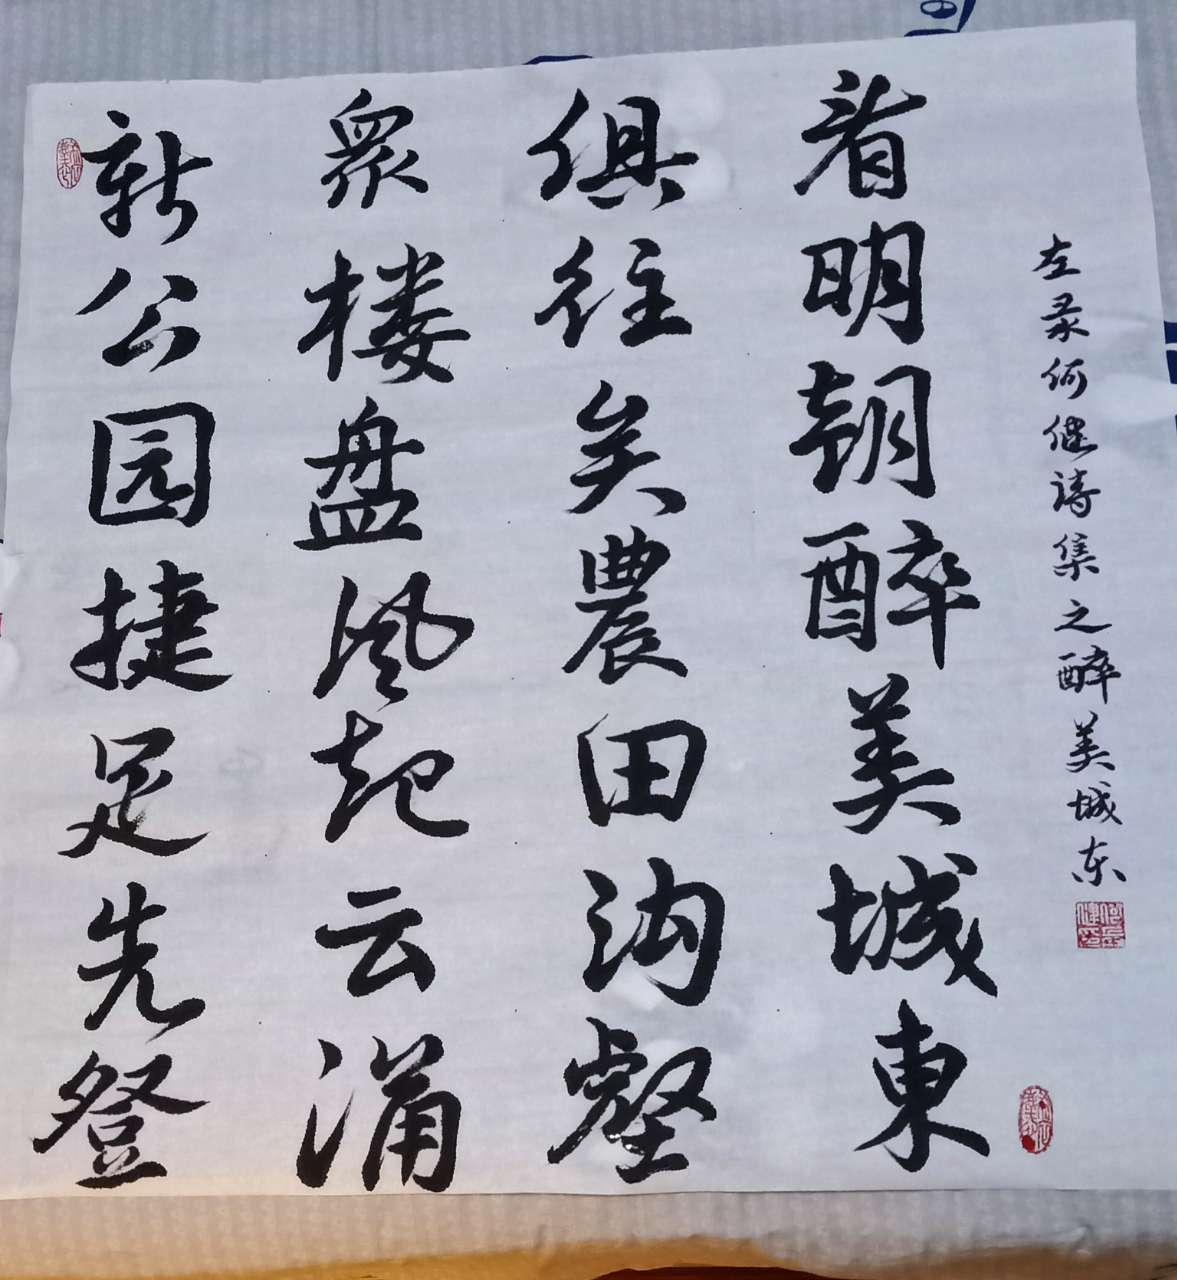 新公园捷足先登
眾楼盘風起云涌
俱往矣農田沟壑
看明朝醉美城東
左录何健诗集之醉美城东